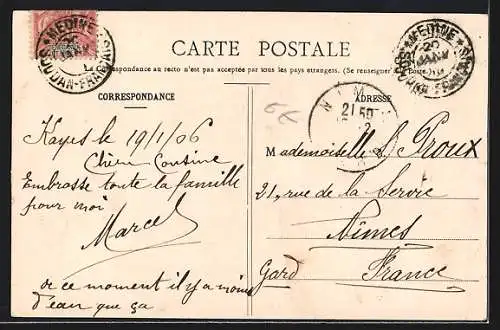 MEDINE
20
JANV
SOUDAN-FRANÇAIS
MEDINE
20
JANV
SOUDAN-FRANÇAIS
CARTE POSTALE
La Correspondance au recto n'est pas acceptée par tous les pays étrangers. (Se renseigner à la Poste.)
CORRESPONDANCE
ADRESSE
NIMES
21 50
2
Kayes le 19/1/06
Chère Cousine
Embrasse toute la famille
pour moi
Marcel
de ce moment il y a moins
d'eau que ça
Mademoiselle L. Proux
21, rue de la Servie
Nîmes
Gard France